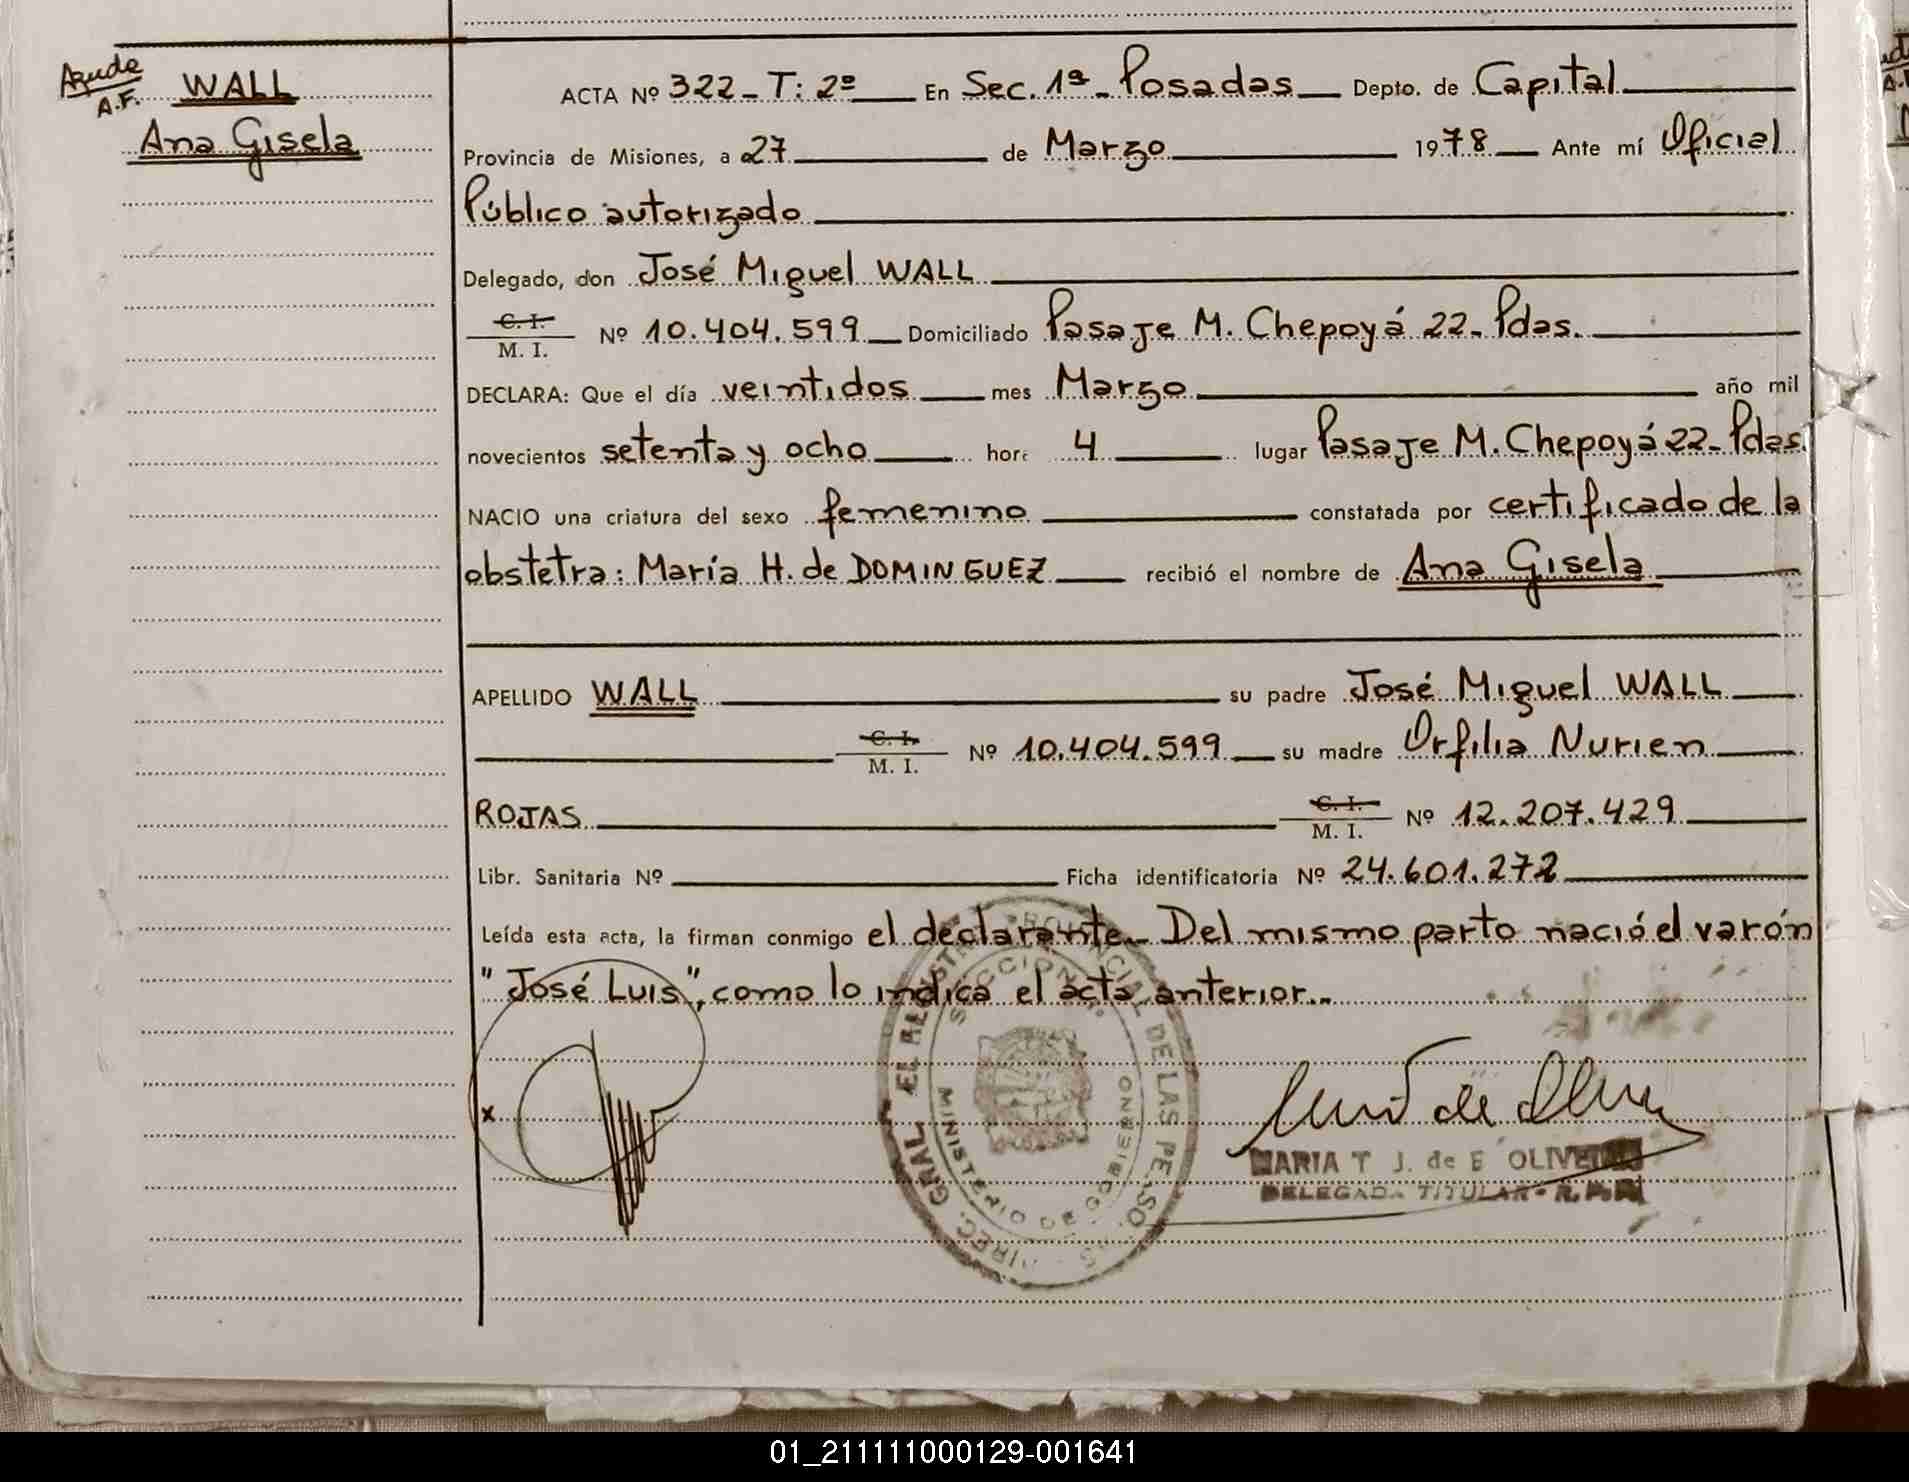 Ayude
A.F.
WALL
Ana Gisela
ACTA Nº 322 - T: 2º En Sec. 1ª - Posadas Depto. de Capital
Provincia de Misiones, a 27 de Marzo 1978 Ante mí Oficial
Público autorizado
Delegado, don José Miguel WALL
C. I.
M. I. Nº 10.404.599 Domiciliado Pasaje M. Chepoyá 22 - Pdas.
DECLARA: Que el día veintidos mes Marzo año mil
novecientos setenta y ocho hora 4 lugar Pasaje M. Chepoyá 22 - Pdas.
NACIO una criatura del sexo femenino constatada por certificado de la
obstetra: María H. de DOMINGUEZ recibió el nombre de Ana Gisela
APELLIDO WALL su padre José Miguel WALL
C. I.
M. I. Nº 10.404.599 su madre Orfilia Nurien
ROJAS C. I.
M. I. Nº 12.207.429
Libr. Sanitaria Nº Ficha identificatoria Nº 24.601.272
Leída esta acta, la firman conmigo el declarante - Del mismo parto nació el varón
"José Luis", como lo indica el acta anterior.-
x
DIREC. GRAL. EL REGISTRO PROVINCIAL DE LAS PERSONAS
SECCION 1º
MINISTERIO DE GOBIERNO
MARIA T J. de E OLIVEIRA
DELEGADA TITULAR - R.P.P.
01_211111000129-001641